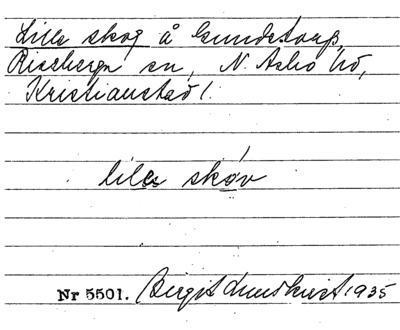 Lille skog å Gundstorp,
Riseberga sn, N. Åsbo hd,
Kristianstad l.
liles skóv
Nr 5501. Birgit Lundkvist 1935